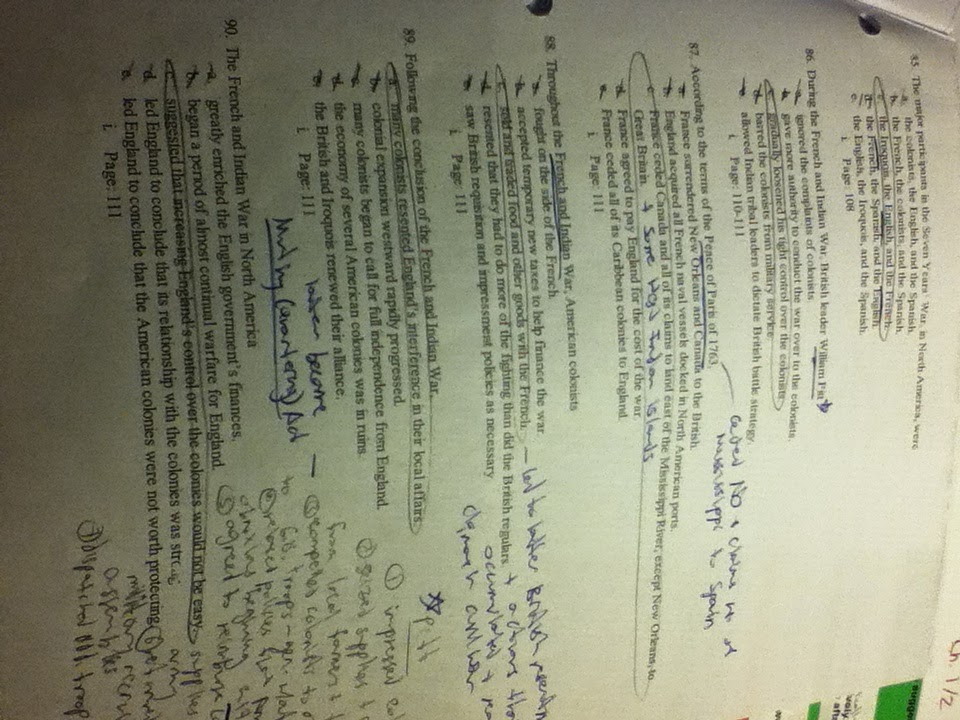 Ch 1/2
85. The major participants in the Seven Years' War in North America, were
a. the colonists, the English, and the Spanish.
b. the French, the colonists, and the Spanish.
c. the Iroquois, the English, and the French.
d. the French, the Spanish, and the English.
e. the English, the Iroquois, and the Spanish.
i. Page: 108
86. During the French and Indian War, British leader William Pitt
a. ignored the complaints of colonists.
b. gave more authority to conduct the war over to the colonists.
c. gradually loosened his tight control over the colonists.
d. barred the colonists from military service.
e. allowed Indian tribal leaders to dictate British battle strategy.
i. Page: 110-111
87. According to the terms of the Peace of Paris of 1763,
a. France surrendered New Orleans and Canada to the British.
b. England acquired all French naval vessels docked in North American ports.
c. France ceded Canada and all of its claims to land east of the Mississippi River, except New Orleans, to
Great Britain. + some West Indian Islands
d. France agreed to pay England for the cost of the war.
e. France ceded all of its Caribbean colonies to England.
i. Page: 111
ceded NO + claims W of
Mississippi to Spain
88. Throughout the French and Indian War, American colonists
a. fought on the side of the French.
b. accepted temporary new taxes to help finance the war
c. sold and traded food and other goods with the French.
d. resented that they had to do more of the fighting than did the British regulars.
e. saw British requisition and impressment policies as necessary
i. Page: 111
led to bitter British
89. Following the conclusion of the French and Indian War,
a. many colonists resented England's interference in their local affairs.
b. colonial expansion westward rapidly progressed.
c. many colonists began to call for full independence from England.
d. the economy of several American colonies was in ruins.
e. the British and Iroquois renewed their alliance.
i. Page: 111
Pitt
① impressed
② seized supplies +
③ compelled colonists to
from local farmers +
troops
④ relaxed policies that
beginning
⑤ agreed to reimburse
supplies
army
assemblies
⑦ dispatched troop
later become
Mutiny (Quartering) Act
90. The French and Indian War in North America
a. greatly enriched the English government's finances.
b. began a period of almost continual warfare for England.
c. suggested that increasing England's control over the colonies would not be easy.
d. led England to conclude that its relationship with the colonies was
e. led England to conclude that the American colonies were not worth protecting
i. Page: 111